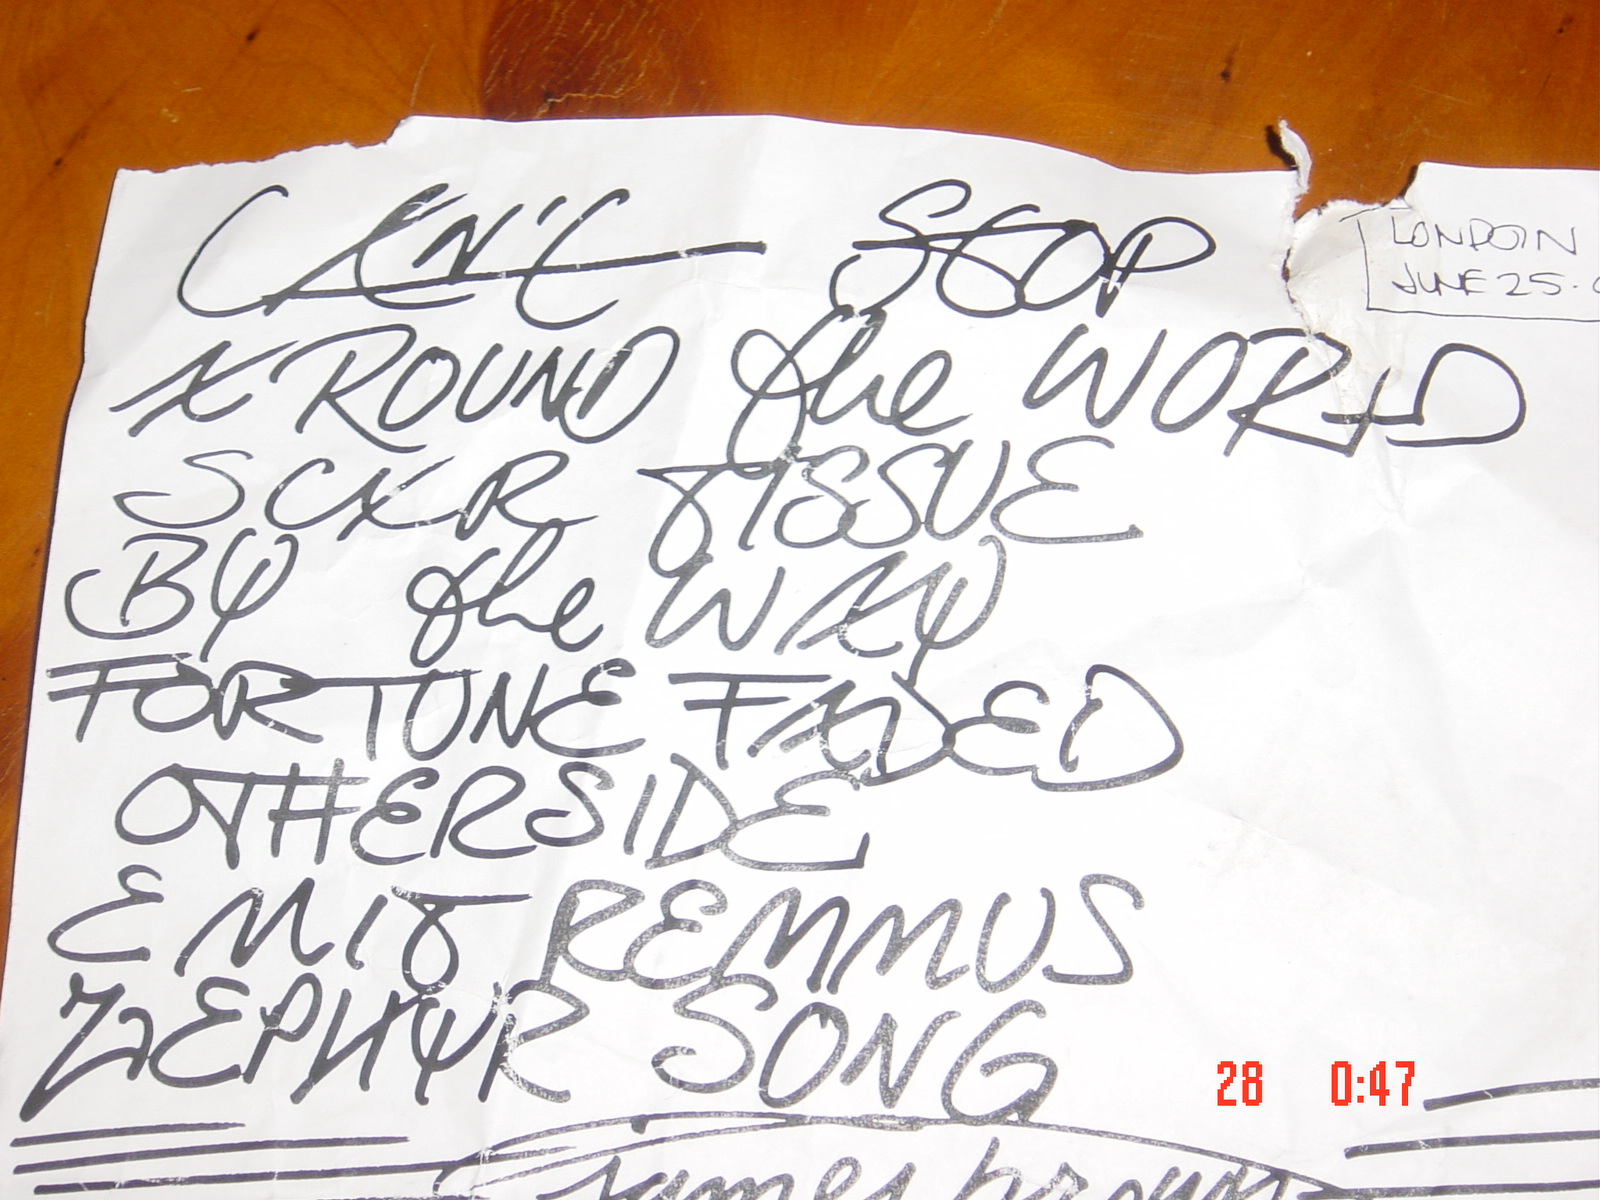 CAN'T STOP
LONDON
JUNE 25.
AROUND the WORLD
SCAR TISSUE
BY the WAY
FORTUNE FADED
OTHERSIDE
EMIT REMMUS
ZEPHYR SONG
28 0:47
james brown